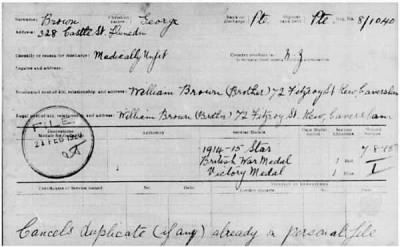 Surname: Brown Christian Names: George Rank on Discharge: Pte. Pte Reg. No. 8/1040
Address: 328 Castle St. Dunedin
Casualty or reason for discharge: Medically Unfit N.Z
Regime and address:
Nominated next-of-kin, relationship and address: William Brown (Brother) 72 Fitzroy St Kew, Caversham
Legal next-of-kin, relationship and address: William Brown (Brother) 72 Fitzroy St. Kew, Caversham
FILE
21 FEB
1914-15 Star
British War Medal 1
Victory Medal 1
Certificates of Service issued: No. Date
Cancels duplicate (if any) already on personal file